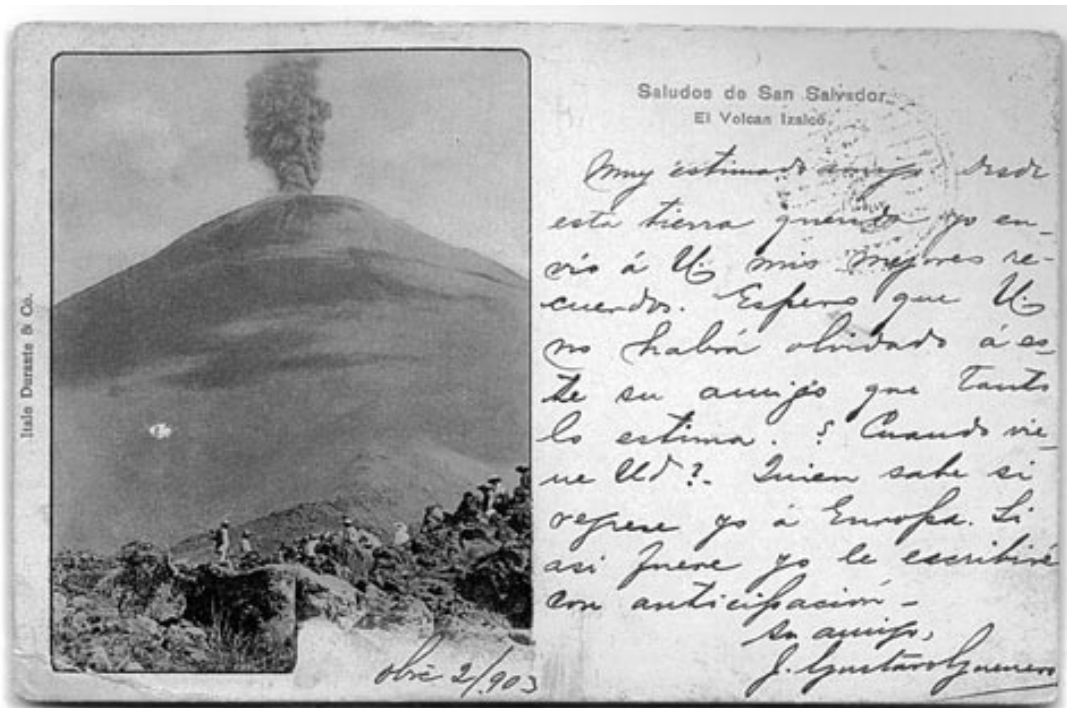 Saludos de San Salvador.
El Volcan Izalco.
Muy estimado amigo: Desde
esta tierra querida yo en-
vío á U. mis mejores re-
cuerdos. Espero que U.
no habrá olvidado á es-
te su amigo que tanto
lo estima. ¿Cuando vie-
ne Ud?. Quien sabe si
regrese yo á Europa. Si
asi fuere yo le escribiré
con anticipación –
Su amigo,
J. Gustavo Guerrero
Italo Durante & Co.
2/903